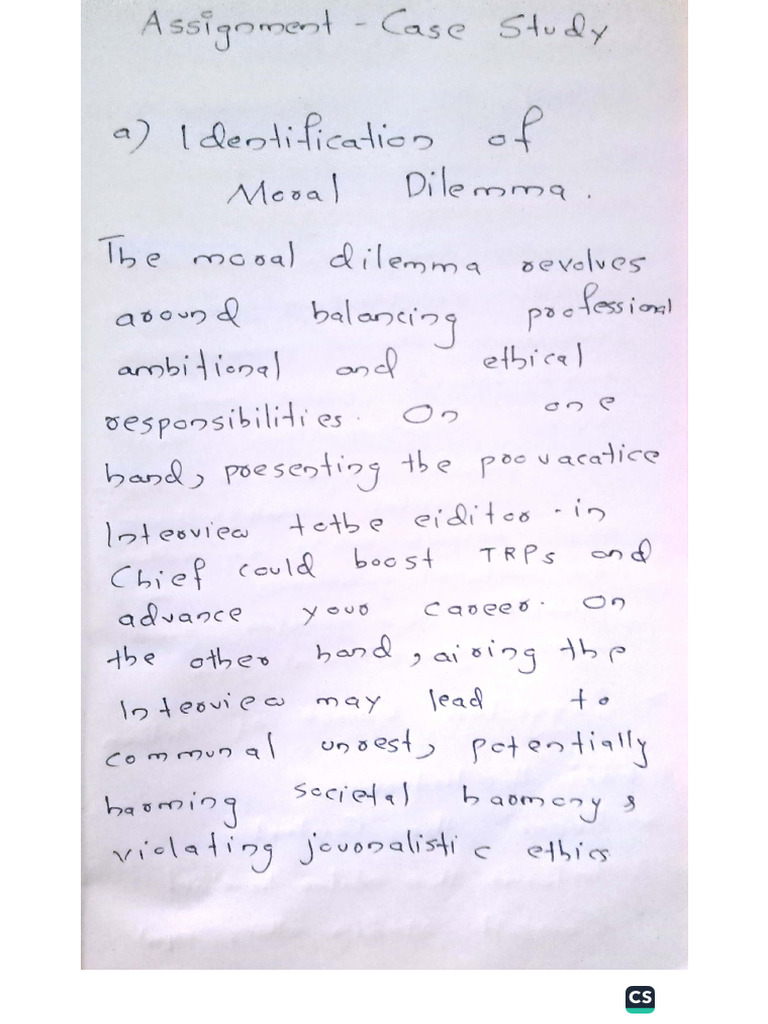 Assignment - Case Study
a) Identification of
Moral Dilemma.
The moral dilemma revolves
around balancing professional
ambitional and ethical
responsibilities. On one
hand, presenting the provacatice
Interview tothe eiditor - in
Chief could boost TRPs and
advance your career. On
the other hand, airing the
Interview may lead to
communal unrest, potentially
harming societal harmony &
violating jouonalistic ethics
CS